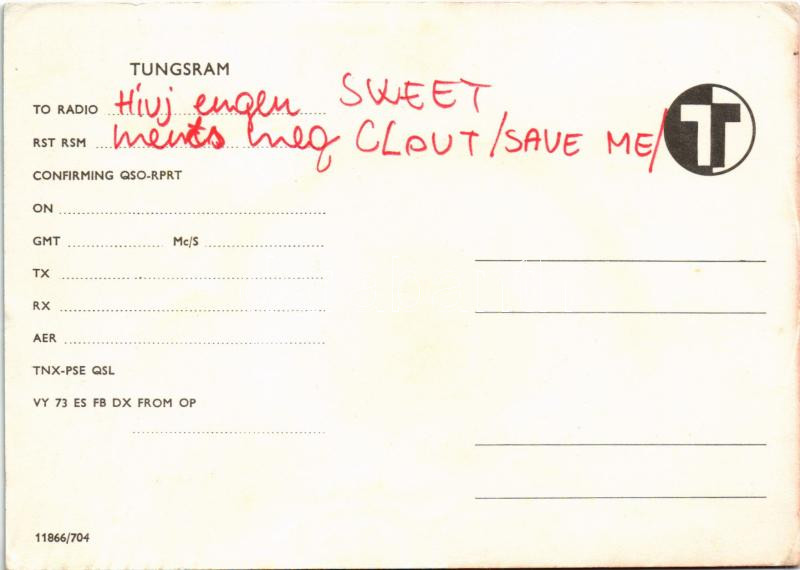 TUNGSRAM
TO RADIO Hivj engem SWEET
RST RSM ments meg CLOUT/SAVE ME/
T
CONFIRMING QSO-RPRT
ON
GMT Mc/S
TX
RX
AER
TNX-PSE QSL
VY 73 ES FB DX FROM OP
11866/704